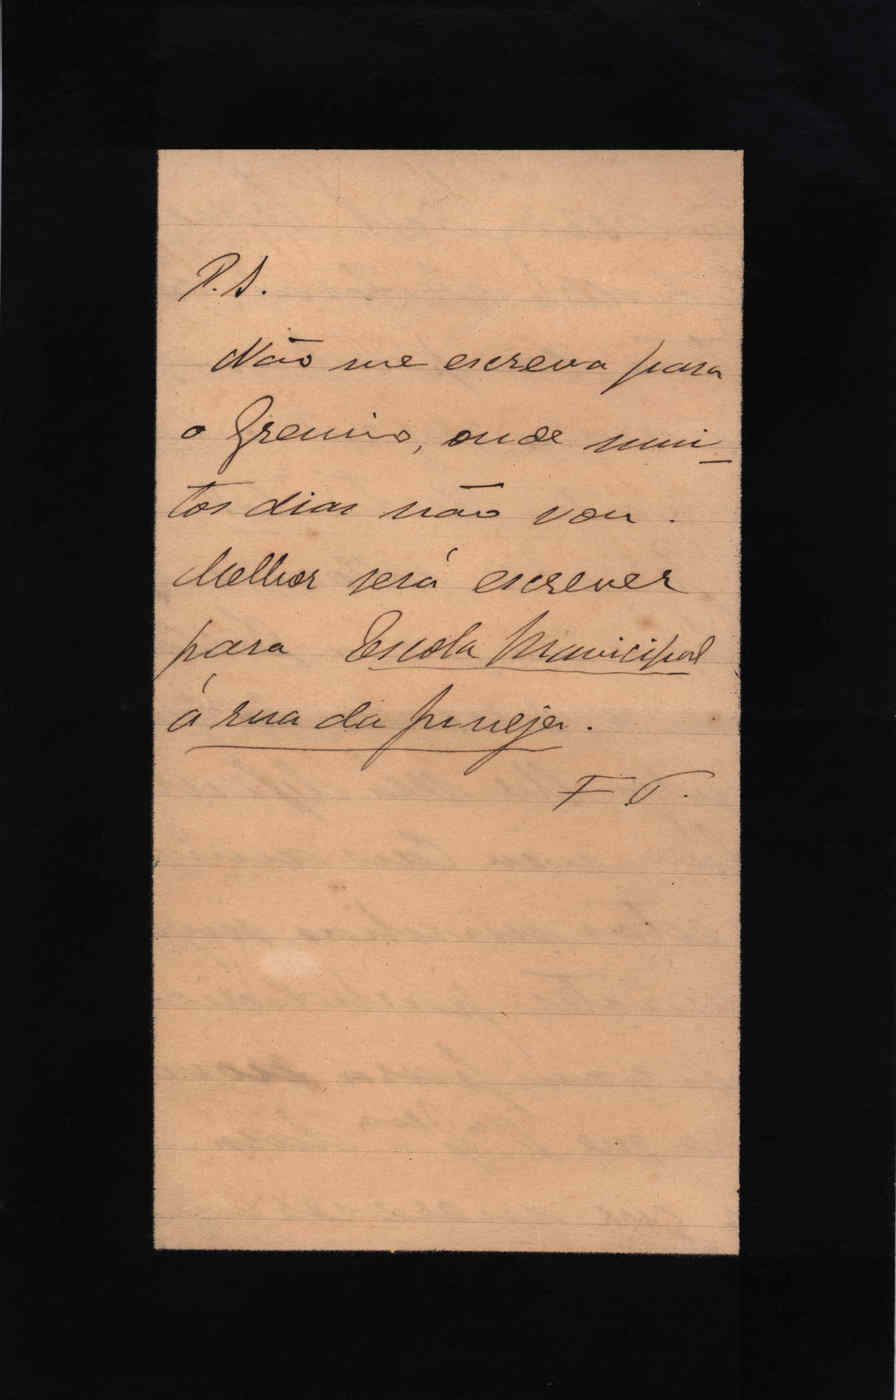 P.S.
Não me escreva para
o Gremio, onde mui-
tos dias não vou.
Melhor será escrever
para Escola Municipal
á rua da
F T.